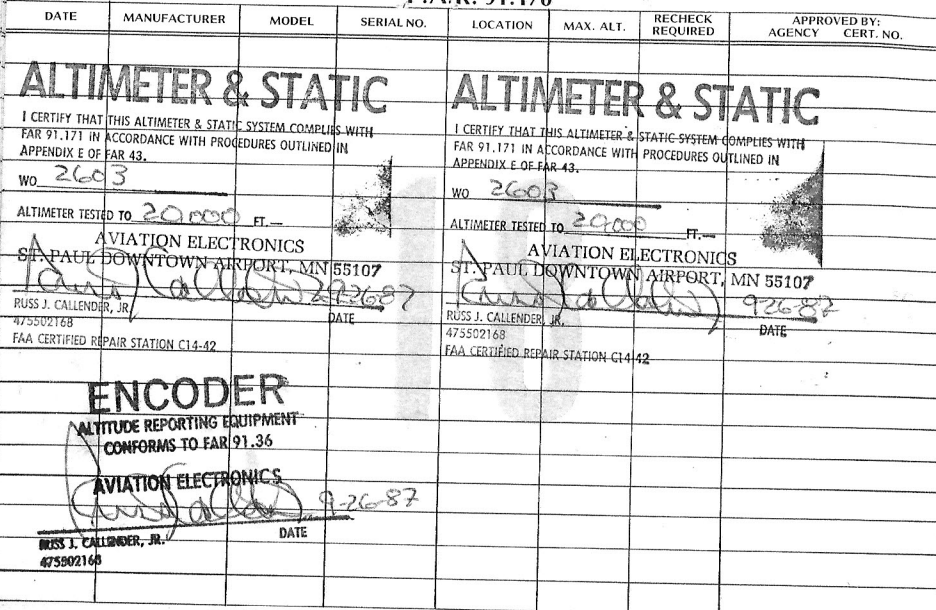 F.A.R. 91.170
DATE MANUFACTURER MODEL SERIAL NO. LOCATION MAX. ALT. RECHECK REQUIRED APPROVED BY: AGENCY CERT. NO.
ALTIMETER & STATIC
I CERTIFY THAT THIS ALTIMETER & STATIC SYSTEM COMPLIES WITH
FAR 91.171 IN ACCORDANCE WITH PROCEDURES OUTLINED IN
APPENDIX E OF FAR 43.
WO 2603
ALTIMETER TESTED TO 20,000 FT.
AVIATION ELECTRONICS
ST. PAUL DOWNTOWN AIRPORT, MN 55107
9-26-87
RUSS J. CALLENDER, JR.
DATE
475502168
FAA CERTIFIED REPAIR STATION C14-42
ALTIMETER & STATIC
I CERTIFY THAT THIS ALTIMETER & STATIC SYSTEM COMPLIES WITH
FAR 91.171 IN ACCORDANCE WITH PROCEDURES OUTLINED IN
APPENDIX E OF FAR 43.
WO 2603
ALTIMETER TESTED TO 20,000 FT.
AVIATION ELECTRONICS
ST. PAUL DOWNTOWN AIRPORT, MN 55107
9-26-87
RUSS J. CALLENDER, JR.
DATE
475502168
FAA CERTIFIED REPAIR STATION C14-42
ENCODER
ALTITUDE REPORTING EQUIPMENT
CONFORMS TO FAR 91.36
AVIATION ELECTRONICS
9-26-87
DATE
RUSS J. CALLENDER, JR.
475502168
10